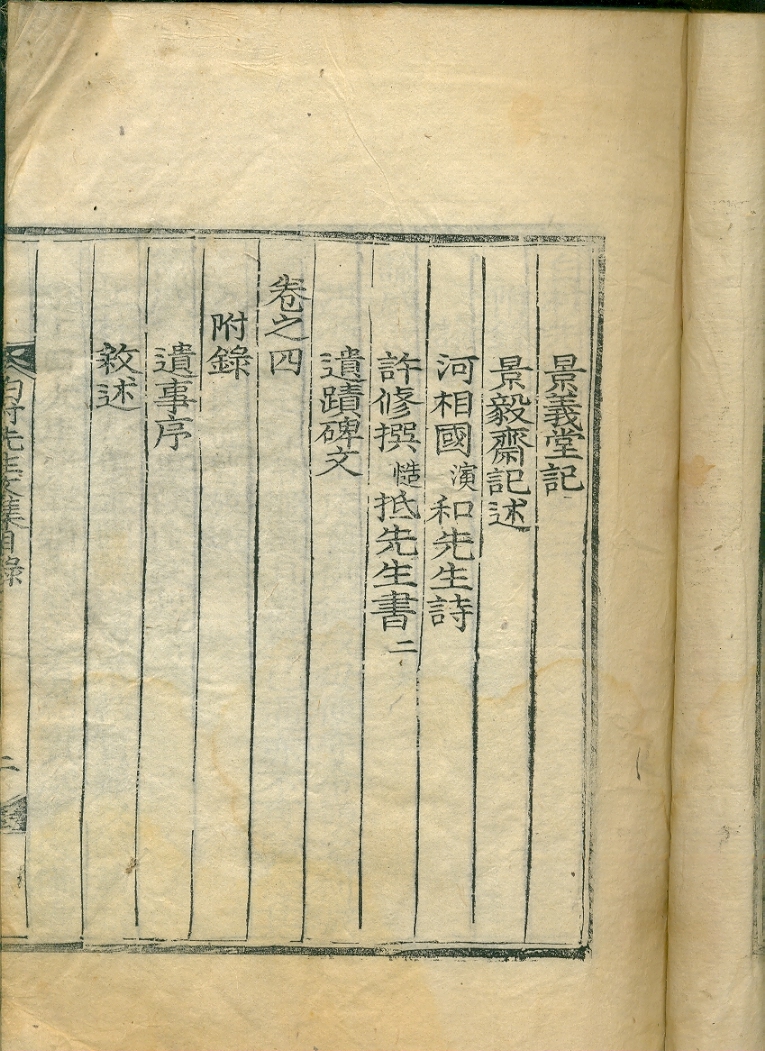 景義堂記
景毅齋記述
河相國演和先生詩
許修撰慥抵先生書二
遺蹟碑文
卷之四
附錄
遺事序
敘述
先生文集目錄
二